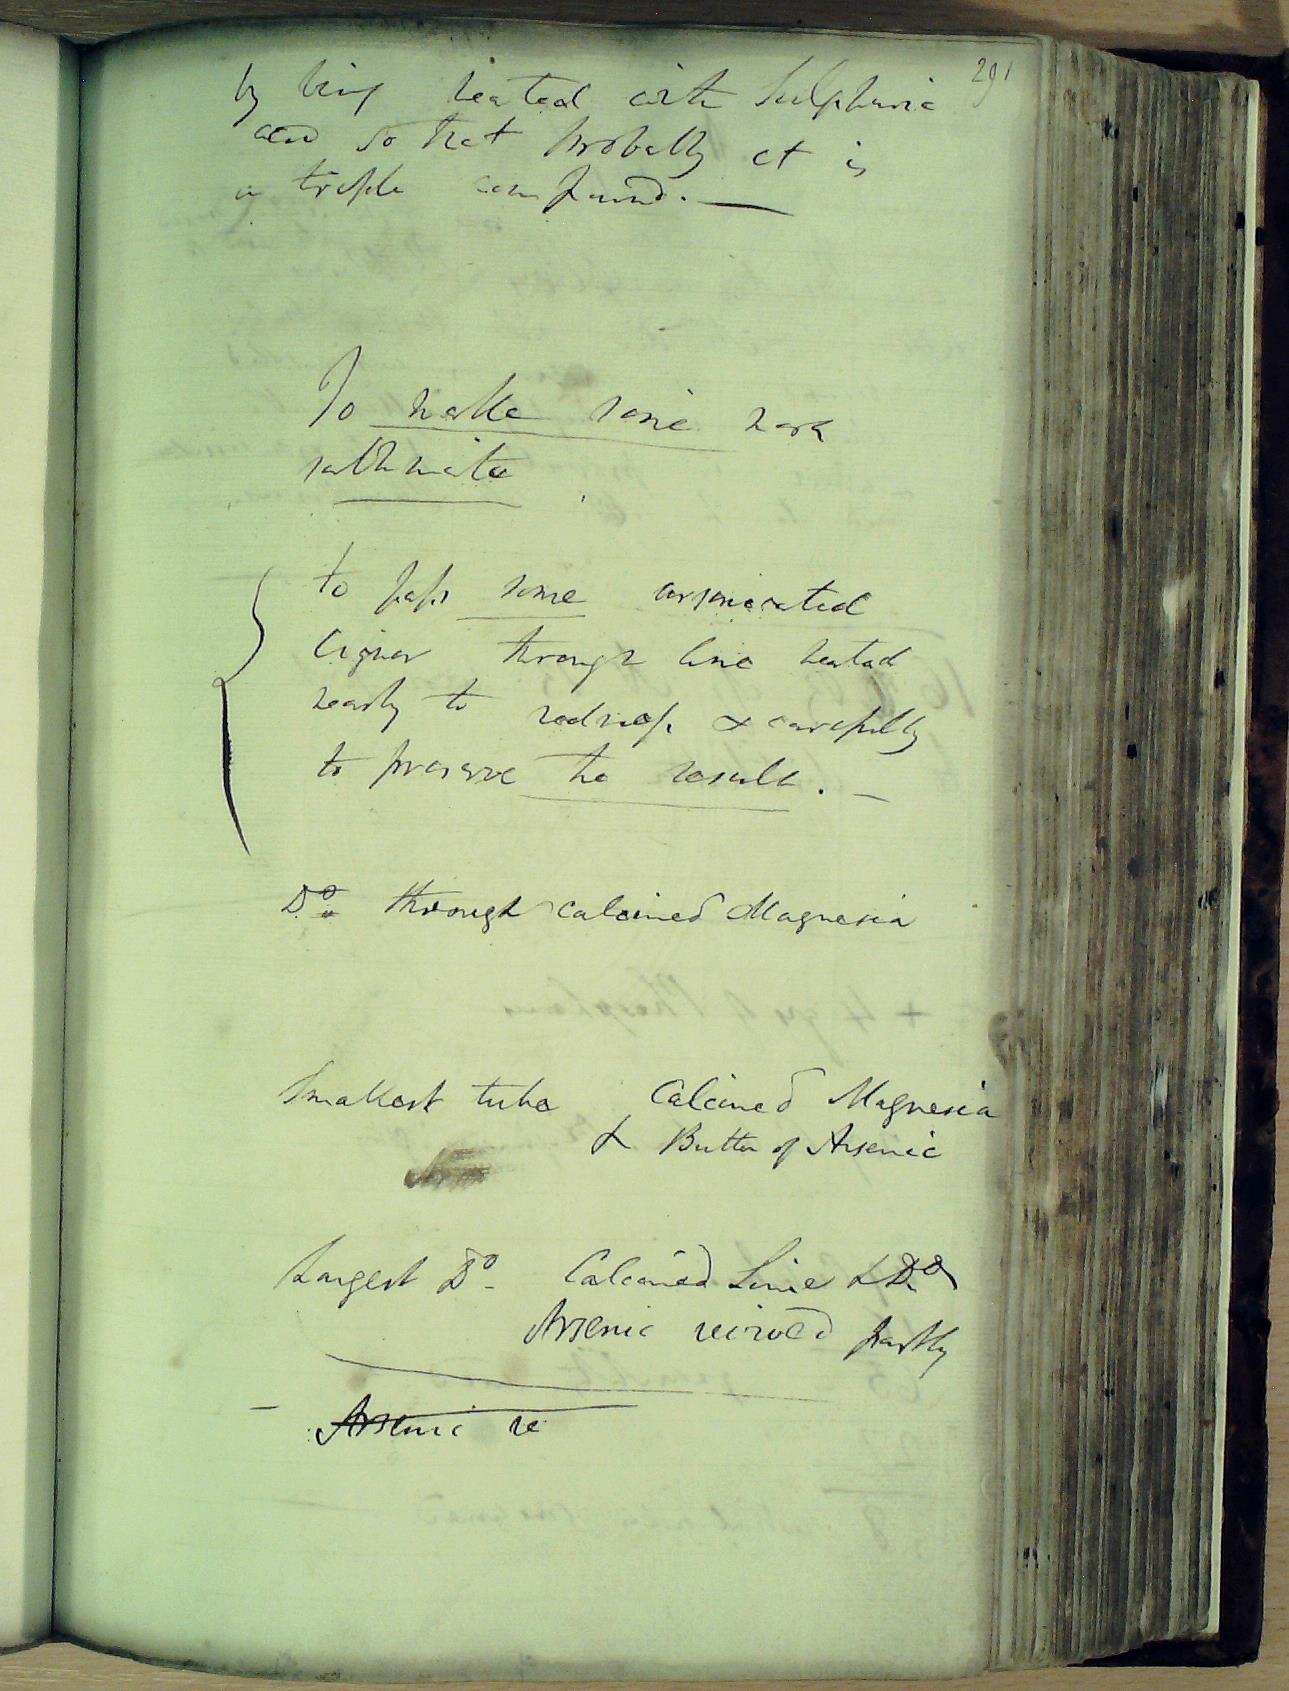 291
by being heated with Sulphuric
acid so that probably it is
a triple compound. —
To make some more
sublimate
to pass some arsenicated
liquor through lime heated
nearly to redness & carefully
to preserve the result. —
Do through calcined Magnesia
Smallest tube Calcined Magnesia
& Butter of Arsenic
Largest Do - Calcined Lime & Do
Arsenic revived partly
- Arsenic re